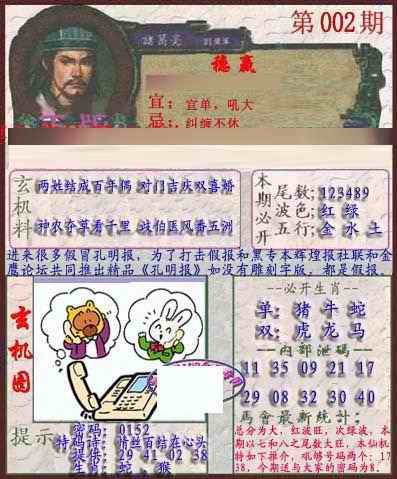 第002期
諸葛亮
稳赢
宜：宜单，吼大
忌：纠缠不休
玄机料
两姓结成百年偶 对门吉庆双喜婚
神农夺草看千里 歧伯医风番五洲
本期必开
尾数;123489
波色;红 绿
五行;金 水 土
进来很多假冒孔明报，为了打击假报和黑专本辉煌报社联和金
鹰论坛共同推出精品《孔明报》如没有雕刻字版，都是假报。
玄机图
必开生肖
单：猪 牛 蛇
双：虎 龙 马
内部泄码
11 35 09 21 17
29 08 32 30 40
馬會最新統計：
总分为大，红波旺，次绿波，本
期以七和八之尾数大旺，本仙机
特如下推介，吼够号码两个：17
38，今期送与大家的密码为8．
提示
密码：0152
特码诗：情丝百结在心头
提供：29 41 02 38
生肖：蛇．猴